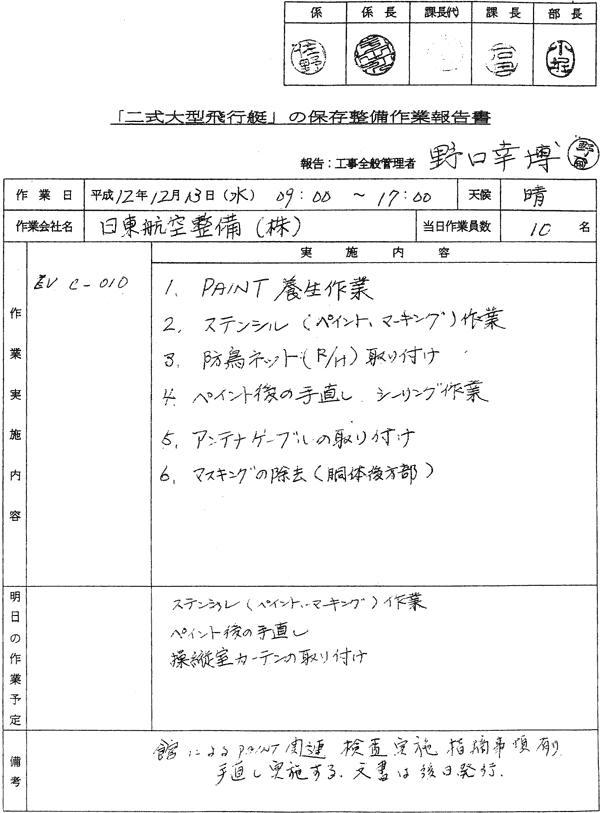 係 係長 課長代 課長 部長
佐野 小堀
「二式大型飛行艇」の保存整備作業報告書
報告：工事全般管理者 野口幸博 野口
作業日 平成12年12月13日(水) 09:00 ～ 17:00 天候 晴
作業会社名 日東航空整備(株) 当日作業員数 10名
作業実施内容 実施内容
EV C-010 1. PAINT 養生作業
2. ステンシル(ペイント、マーキング)作業
3. 防鳥ネット(R/H)取り付け
4. ペイント後の手直し シーリング作業
5. アンテナケーブルの取り付け
6. マスキングの除去(胴体後方部)
明日の作業予定
ステンシル(ペイント、マーキング)作業
ペイント後の手直し
操縦室カーテンの取り付け
備考
館によるPAINT関連 検査実施 指摘事項有り
手直し実施する. 文書は後日発行.